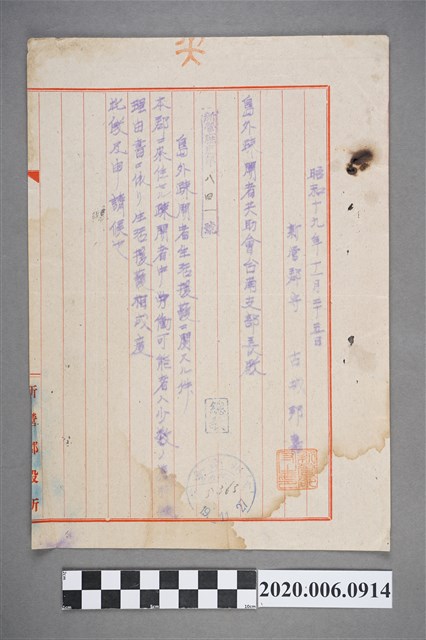 昭和十九年十一月二十五日
新營郡守
島外疎開者共助會台南支部長殿
八四一號
島外疎開者生活援護ニ關スル件
本郡ニ來住セル疎開者中労働可能者ハ少数ノ
理由書ニ依リ生活援護相成度
此段及申請候也
新營郡役所
10cm
2020.006.0914